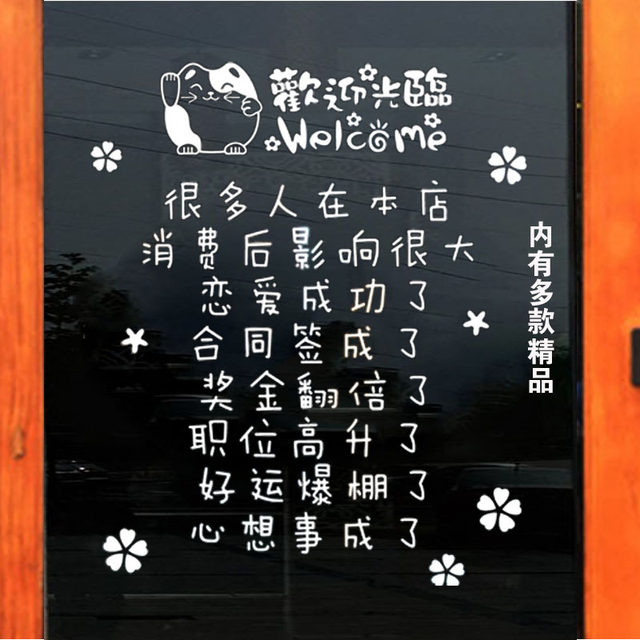 歡迎光臨
Welcome
很多人在本店
消费后影响很大
恋爱成功了
合同签成了
奖金翻倍了
职位高升了
好运爆棚了
心想事成了
内有多款精品